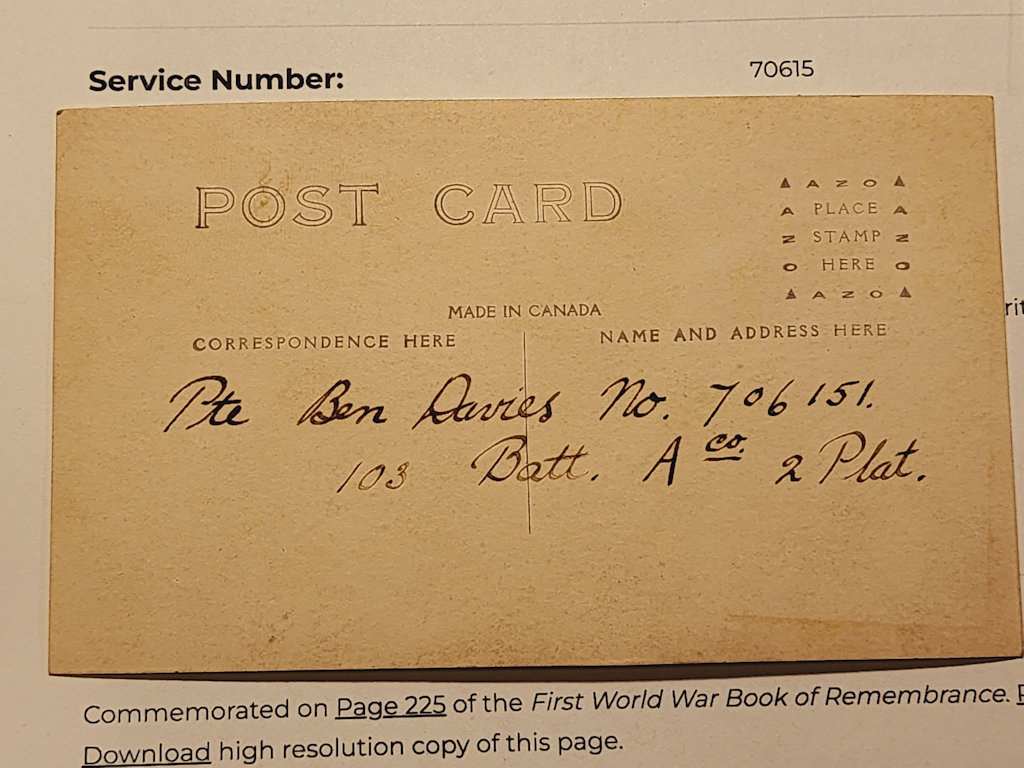 Service Number: 70615
POST CARD
AZO
A PLACE A
Z STAMP Z
O HERE O
AZO
MADE IN CANADA
CORRESPONDENCE HERE NAME AND ADDRESS HERE
Pte Ben Davies No. 706151.
103 Batt. A co. 2 Plat.
Commemorated on Page 225 of the First World War Book of Remembrance.
Download high resolution copy of this page.